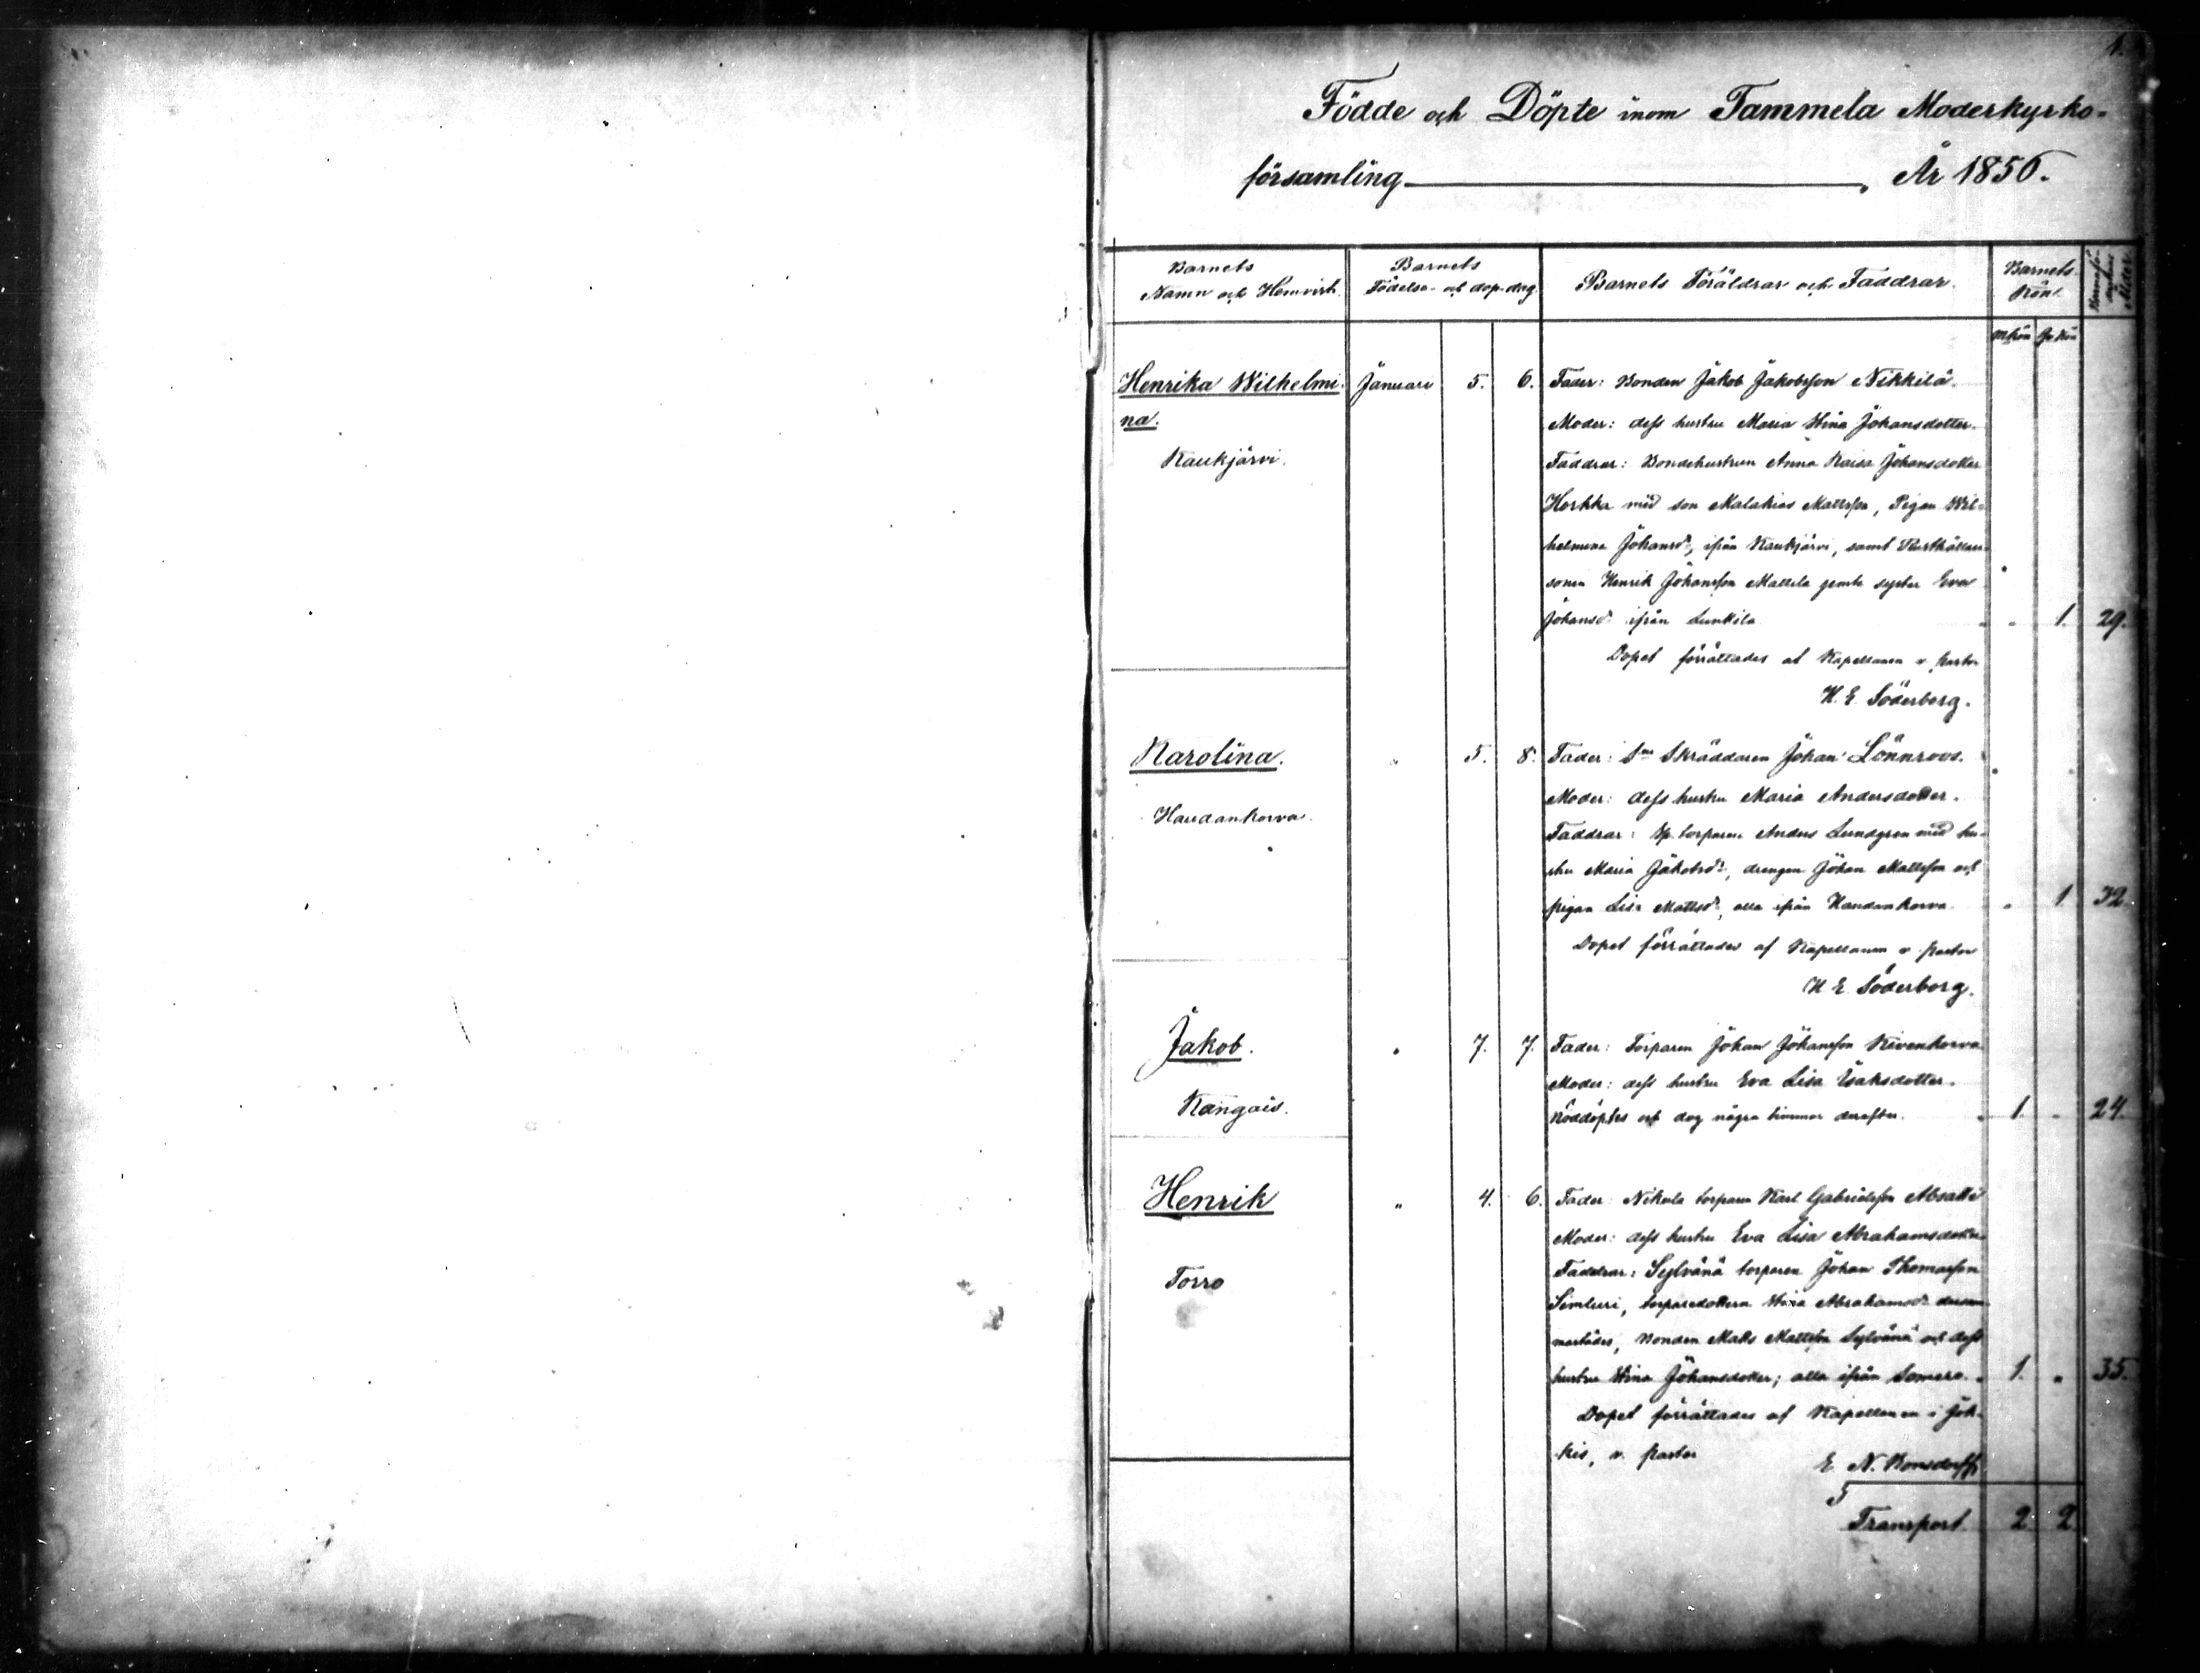 1.
Födde och Döpte inom Tammela Moderkyrko-
församling, År 1850.
Barnets Namn och Hemvist.
Barnets Födelse- och dop-dag.
Barnets Föräldrar och Faddrar.
Barnets Kön.
Mkön Qvkön
Henrika Wilhelmi-
na.
Kaukjärvi.
Januari 5. 6.
Fader: Bonden Jakob Jakobsson Nikkilä.
Moder: dess hustru Maria Stina Johansdotter.
Faddrar: Bondehustrun Anna Kaisa Johansdotter
Horkka med son Malakias Mattsson, Pigan Wil-
helmina Johansdr, ifrån Kaukjärvi, samt Rusthållare
sonen Henrik Johansson Mattila jemte syster Eva
Johansdr ifrån Sukkila " 1. 29.
Dopet förrättades af Kapellanen v. pastor
H. E. Söderborg.
Karolina.
Haudankorva.
" 5. 8.
Fader: Sn Skräddaren Johan Lönnroos.
Moder: dess hustru Maria Andersdotter.
Faddrar: Sp. torparen Anders Lundgren med hu-
stru Maria Jakobsdr, drengen Johan Mattsson och
pigan Lisa Mattsdr, alla ifrån Haudankorva. " 1. 32.
Dopet förrättades af Kapellanen v. pastor
H. E. Söderborg.
Jakob.
Kangais.
" 7. 7.
Fader: Torparen Johan Johansson Kivenkorva
Moder: dess hustru Eva Lisa Isaksdotter.
Nöddöptes och dog några timmar derefter. 1. " 24.
Henrik
Torro
" 4. 6.
Fader: Nikula torparen Karl Gabrielsson Absatti
Moder: dess hustru Eva Lisa Abrahamsdotter
Faddrar: Sylvänä torparen Johan Thomasson
Simluri, torparedottern Stina Abrahamsdr dersam-
mastädes, Bonden Matts Mattsson Sylvänä och dess
hustru Stina Johansdotter; alla ifrån Somero. 1. " 35.
Dopet förrättades af Kapellanen i Jok-
kis, v. pastor
E. N. Bonsdorff.
Transport. 2 2